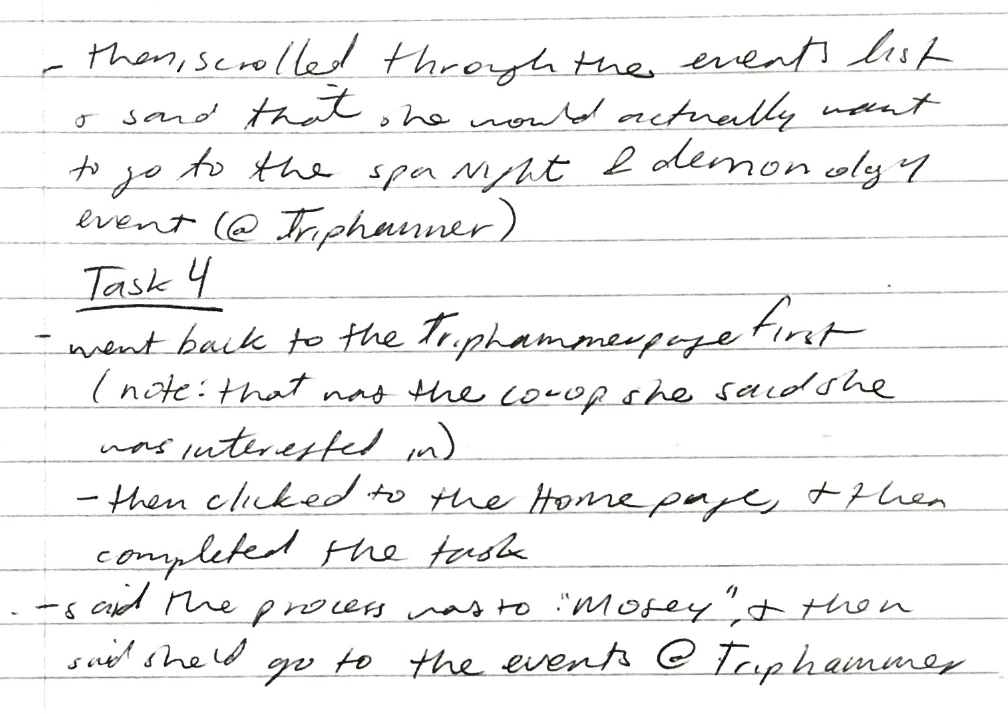 - then, scrolled through the events list
& said that she would actually want
to go to the spa night & demonology
event (@ Triphammer)
Task 4
- went back to the Triphammer page first
(note: that was the co-op she said she
was interested in)
- then clicked to the Home page, & then
completed the task
- said the process was to "Mosey", & then
said she'd go to the events @ Triphammer